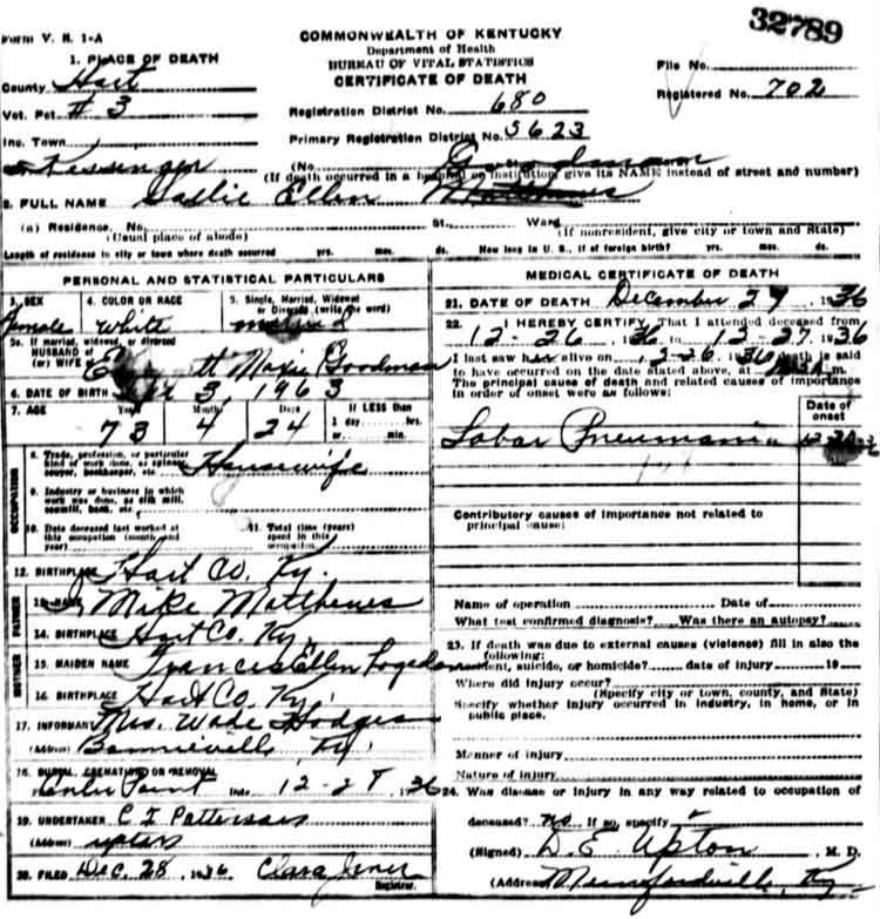 32789
Form V. S. 1-A
COMMONWEALTH OF KENTUCKY
Department of Health
BUREAU OF VITAL STATISTICS
CERTIFICATE OF DEATH
File No.
Registered No. 702
1. PLACE OF DEATH
County Hart
Vot. Pct # 3
Registration District No. 680
Inc. Town
Primary Registration District No. 5623
(No. St.
(If death occurred in a hospital or institution, give its NAME instead of street and number)
Goodman
2. FULL NAME Sallie Ellen Matthews
(a) Residence. No. St. Ward
(Usual place of abode) (If nonresident, give city or town and State)
Length of residence in city or town where death occurred yrs. mos. ds. How long in U. S., if of foreign birth? yrs. mos. ds.
PERSONAL AND STATISTICAL PARTICULARS
3. SEX 4. COLOR OR RACE 5. Single, Married, Widowed or Divorced (write the word)
Female White
5a. If married, widowed, or divorced
HUSBAND of
(or) WIFE of Maxie Goodman
6. DATE OF BIRTH 3, 1963
7. AGE Years Months Days If LESS than
1 day hrs.
or min.
73 4 24
OCCUPATION
8. Trade, profession, or particular kind of work done, as spinner, sawyer, bookkeeper, etc. Housewife
9. Industry or business in which work was done, as silk mill, sawmill, bank, etc.
10. Date deceased last worked at this occupation (month and year)
11. Total time (years) spent in this occupation
12. BIRTHPLACE Hart Co. Ky.
FATHER
13. NAME Mike Matthews
14. BIRTHPLACE Hart Co. Ky.
MOTHER
15. MAIDEN NAME Frances Ellen Logsdon
16. BIRTHPLACE Hart Co. Ky.
17. INFORMANT Mrs. Wade Hodges
(Address) Bonnieville, Ky.
18. BURIAL, CREMATION OR REMOVAL
Point Date 12-28, 1936
19. UNDERTAKER C I Patterson
(Address) Upton
20. FILED Dec. 28, 1936 Clara Jones
Registrar.
MEDICAL CERTIFICATE OF DEATH
21. DATE OF DEATH December 27, 1936
22. I HEREBY CERTIFY, That I attended deceased from
12-26, 1936 to 12-27, 1936
I last saw her alive on 12-26, 1936 death is said
to have occurred on the date stated above, at m.
The principal cause of death and related causes of importance
in order of onset were as follows:
Date of onset
Lobar Pneumonia
Contributory causes of importance not related to
principal cause:
Name of operation Date of
What test confirmed diagnosis? Was there an autopsy?
23. If death was due to external causes (violence) fill in also the
following:
Accident, suicide, or homicide? date of injury 19
Where did injury occur?
(Specify city or town, county, and State)
Specify whether injury occurred in industry, in home, or in
public place.
Manner of injury
Nature of injury
24. Was disease or injury in any way related to occupation of
deceased? No If so, specify
(Signed) D. E. Upton, M. D.
(Address) Munfordville, Ky